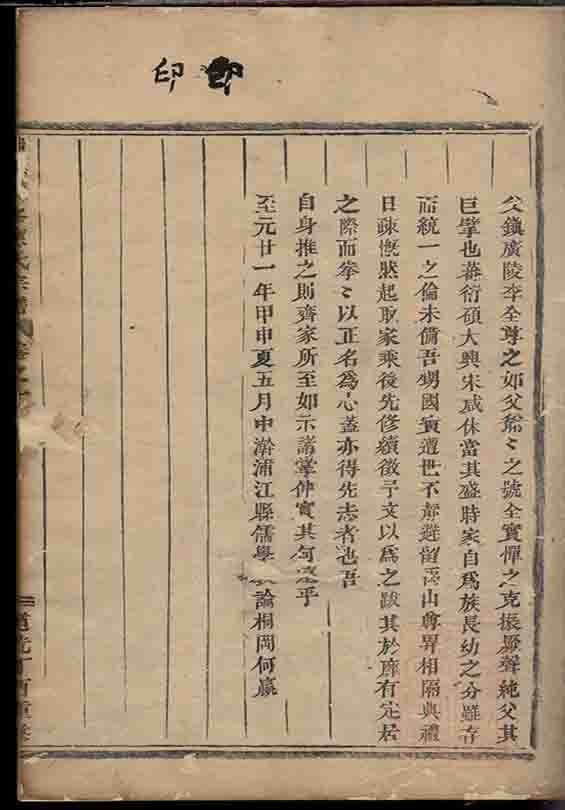 印 印
父鎮廣陵李全尊之如父爺〻之號全實憚之克振厥聲純父其
巨擘也蕃衍碩大興宋咸休當其盛時家自為族長幼之分雖存
而統一之倫未備吾甥國賓遭世不靖避留玉山尊畀相隔典禮
日疎慨然起取家乘後先修續徵予文以為之跋其於靡有定居
之際而拳〻以正名為心蓋亦得先志者也吾
自身推之則齊家所至如示諸掌仲實其勾 乎
至元廿一年甲申夏五月中澣浦江縣儒學 論桐岡何贏
氏宗譜 卷之
道光丁酉重修